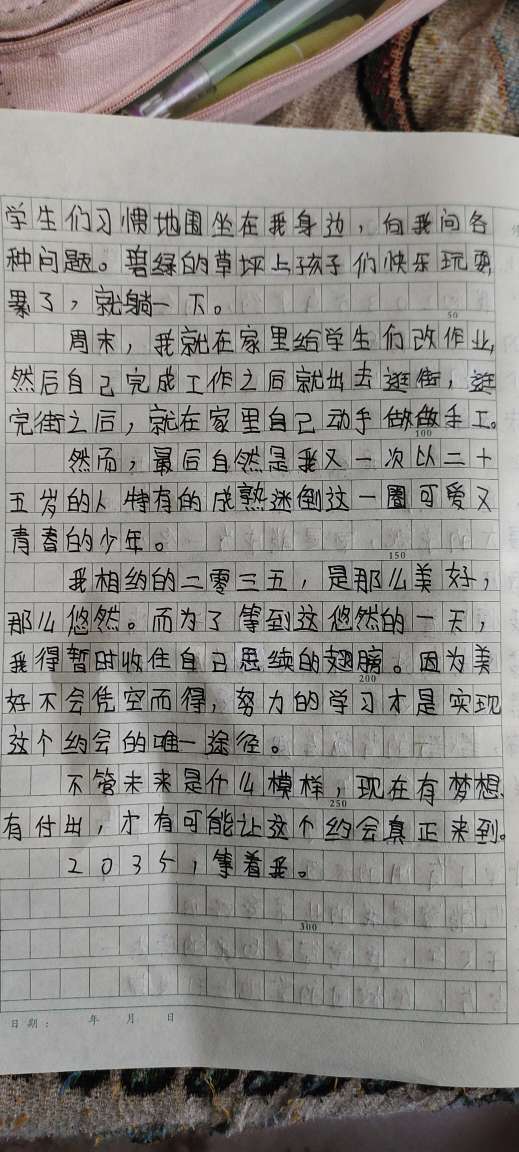 学生们习惯地围坐在我身边，向我问各
种问题。碧绿的草坪上孩子们快乐玩耍
累了，就躺一下。
50
周末，我就在家里给学生们改作业，
然后自己完成工作之后就出去逛街，逛
完街之后，就在家里自己动手做做手工。
100
然而，最后自然是我又一次以二十
五岁的人特有的成熟迷倒这一圈可爱又
青春的少年。
150
我相约的二零三五，是那么美好，
那么悠然。而为了等到这悠然的一天，
我得暂时收住自己思续的翅膀。因为美
200
好不会凭空而得，努力的学习才是实现
这个约会的唯一途径。
不管未来是什么模样，现在有梦想、
250
有付出，才有可能让这个约会真正来到。
2035，等着我。
300
日期： 年 月 日